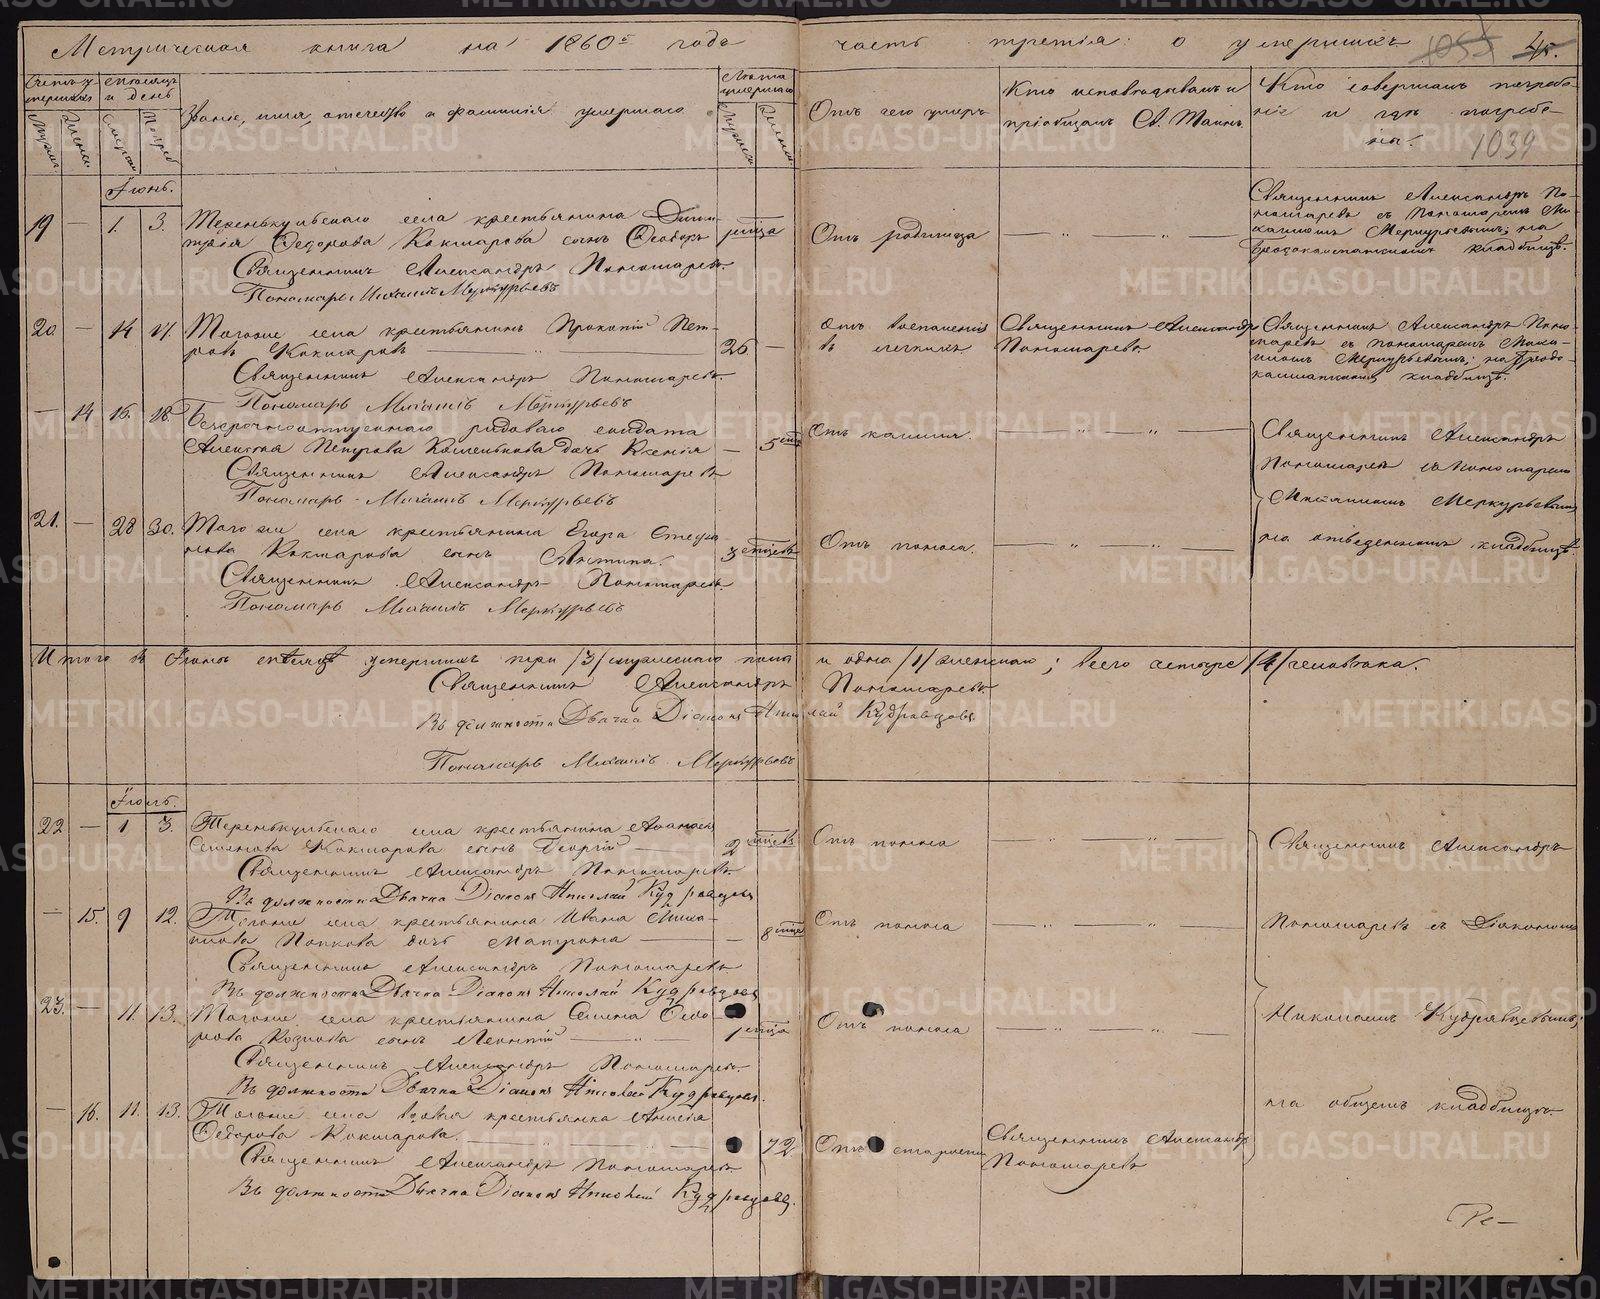 Метрическая книга на 1860й годъ часть третія: о умершихъ 4
Счетъ у-
мершихъ
Мѣсяцъ
и день
Званіе, имя, отечество и фамилія умершаго.
Лѣта
умершаго
Отъ чего умеръ
Кто исповѣдывалъ и
пріобщалъ Св. Таинъ.
Кто совершалъ погребе-
ніе и гдѣ погребе-
ны.
1039
Іюнь.
19 — 1. 3. Теренькульскаго села крестьянина Дими-
трія Ѳедорова Кокшарова сынъ Ѳеодоръ
Отъ родимца
Священникъ Александръ По-
номаревъ съ пономаремъ Ми-
хаиломъ Меркурьевымъ; на
кладбищѣ.
Священникъ Александръ Пономаревъ.
Пономарь Михаилъ Меркурьевъ
20. — 14 17. Тогоже села крестьянинъ Прокопій Пет-
ровъ Кокшаровъ 26 —
Отъ воспаленія
въ легкихъ
Священникъ Александръ
Пономаревъ.
Священникъ Александръ Поно-
маревъ съ пономаремъ Миха-
иломъ Меркурьевымъ; на
кладбищѣ.
Священникъ Александръ Пономаревъ.
Пономарь Михаилъ Меркурьевъ
— 14 16. 18. Безсрочноотпускнаго рядоваго солдата
Алексѣя Петрова дочь Ксенія — 5
Отъ кашля.
Священникъ Александръ
Пономаревъ съ пономаремъ
Михаиломъ Меркурьевымъ
на отведенномъ кладбищѣ.
Священникъ Александръ Пономаревъ
Пономарь Михаилъ Меркурьевъ
21. — 28 30. Того же села крестьянина Егора Степа-
нова Кокшарова сынъ
Отъ поноса.
Священникъ Александръ Пономаревъ.
Пономарь Михаилъ Меркурьевъ
Итого въ Іюнѣ мѣсяцѣ умершихъ три /3/ мужескаго пола и одна /1/ женскаго; всего четыре /4/ человѣка.
Священникъ Александръ Пономаревъ
Въ должности Дьячка Діаконъ Николай Кудрявцовъ.
Пономарь Михаилъ Меркурьевъ
Іюль.
22 — 1 3. Теренькульскаго села крестьянина Аѳанасія
Семенова Кокшарова сынъ Георгій 2
Отъ поноса
Священникъ Александръ
Пономаревъ съ Діакономъ
Николаемъ Кудрявцевымъ;
на общемъ кладбищѣ.
Священникъ Александръ Пономаревъ
Въ должности Дьячка Діаконъ Николай Кудрявцовъ
— 15. 9 12. Тогоже села крестьянина Ивана Миха-
илова Попкова дочь Матрона — 8
Отъ поноса
Священникъ Александръ Пономаревъ
Въ должности Дьячка Діаконъ Николай Кудрявцовъ
23. — 11. 13. Тогоже села крестьянина Семена Ѳедо-
рова Козлова сынъ Леонтій
Отъ поноса
Священникъ Александръ Пономаревъ.
Въ должности Дьячка Діаконъ Николай Кудрявцовъ.
— 16. 11. 13. Тогоже села вдова крестьянка
Ѳедорова Кокшарова. 72
Отъ старости
Священникъ Александръ
Пономаревъ
Священникъ Александръ Пономаревъ
Въ должности Дьячка Діаконъ Николай Кудрявцовъ.
METRIKI.GASO-URAL.RU